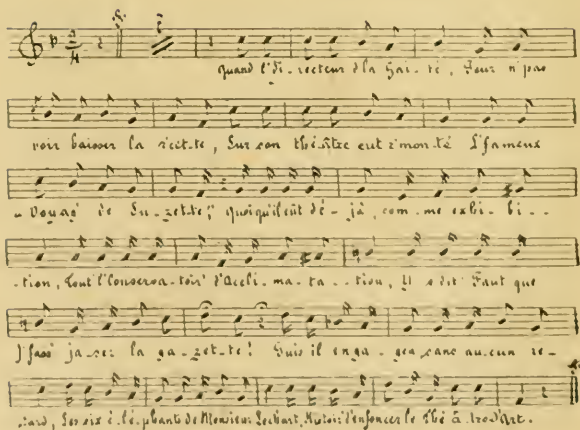 Quand l'di-recteur d'la Gaî-té, Pour n'pas
voir baisser la r'cet-te, Sur son théâtre eut r'mon-té L'fameux
"Voyag' de Su-zet-te;" quoiqu'il eût dé-jà, com-me exhi-bi-
-tion, Tout l'Conserva-toir' d'Accli-ma-ta-tion, Il s'dit: Faut que
j'fass' ja-ser la ga-zet-te! Puis il enga-gea, sans au-cun re-
-tard, Les six é-lé-phants de Monsieur Lockart, Histoir' d'enfoncer le Thé-â-tre d'Art.